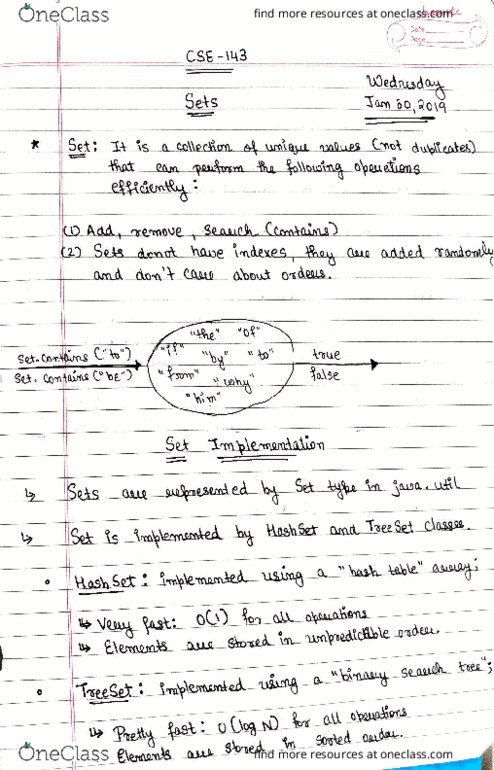 OneClass find more resources at oneclass.com
Date
Page
CSE-143
Wednesday
Sets Jan 30, 2019
* Set: It is a collection of unique values (not duplicates)
that can perform the following operations
efficiently:
(1) Add, remove, search (contains)
(2) Sets donot have indexes, they are added randomly
and don't care about orders.
"the" "of"
set.contains ("to") "if" "by" "to" true
set.contains ("be") "from" "why" false
"him"
Set Implementation
↳ Sets are represented by Set type in java.util
↳ Set is implemented by HashSet and TreeSet classes.
• HashSet: implemented using a "hash table" array;
↳ Very fast: O(1) for all operations
↳ Elements are stored in unpredictable order.
• TreeSet: implemented using a "binary search tree";
↳ Pretty fast: O(log N) for all operations
Elements are stored in sorted order.
OneClass find more resources at oneclass.com